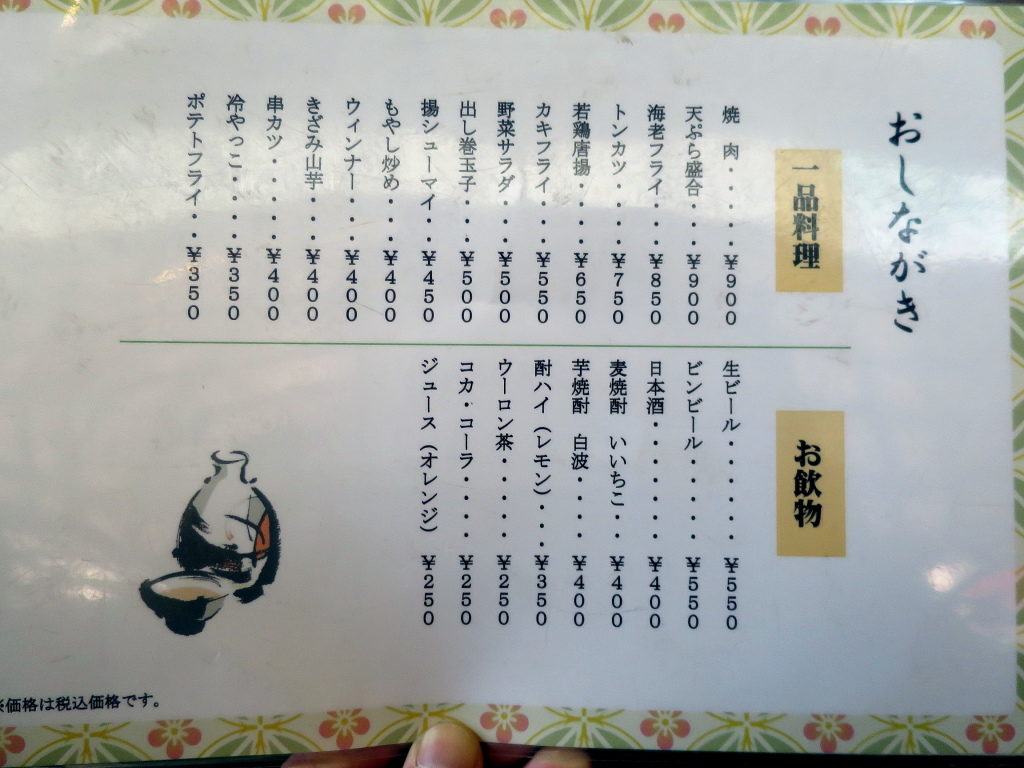 おしながき
一品料理
焼肉・・・・・￥900
天ぷら盛合・・・￥900
海老フライ・・・￥850
トンカツ・・・・￥750
若鶏唐揚・・・・￥650
カキフライ・・・￥550
野菜サラダ・・・￥500
出し巻玉子・・・￥500
揚シューマイ・・￥450
もやし炒め・・・￥400
ウィンナー・・・￥400
きざみ山芋・・・￥400
串カツ・・・・・￥400
冷やっこ・・・・￥350
ポテトフライ・・￥350
お飲物
生ビール・・・・・￥550
ビンビール・・・・￥550
日本酒・・・・・・￥400
麦焼酎 いいちこ・・￥400
芋焼酎 白波・・・￥400
酎ハイ（レモン）・・・￥350
ウーロン茶・・・・￥250
コカ・コーラ・・・￥250
ジュース（オレンジ）￥250
※価格は税込価格です。